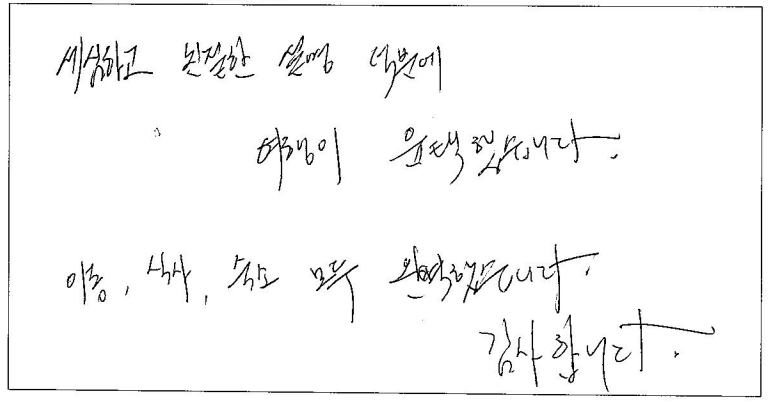 세심하고 친절한 설명 덕분에
여행이 윤택했습니다.
이동, 식사, 숙소 모두 완벽했습니다.
감사합니다.